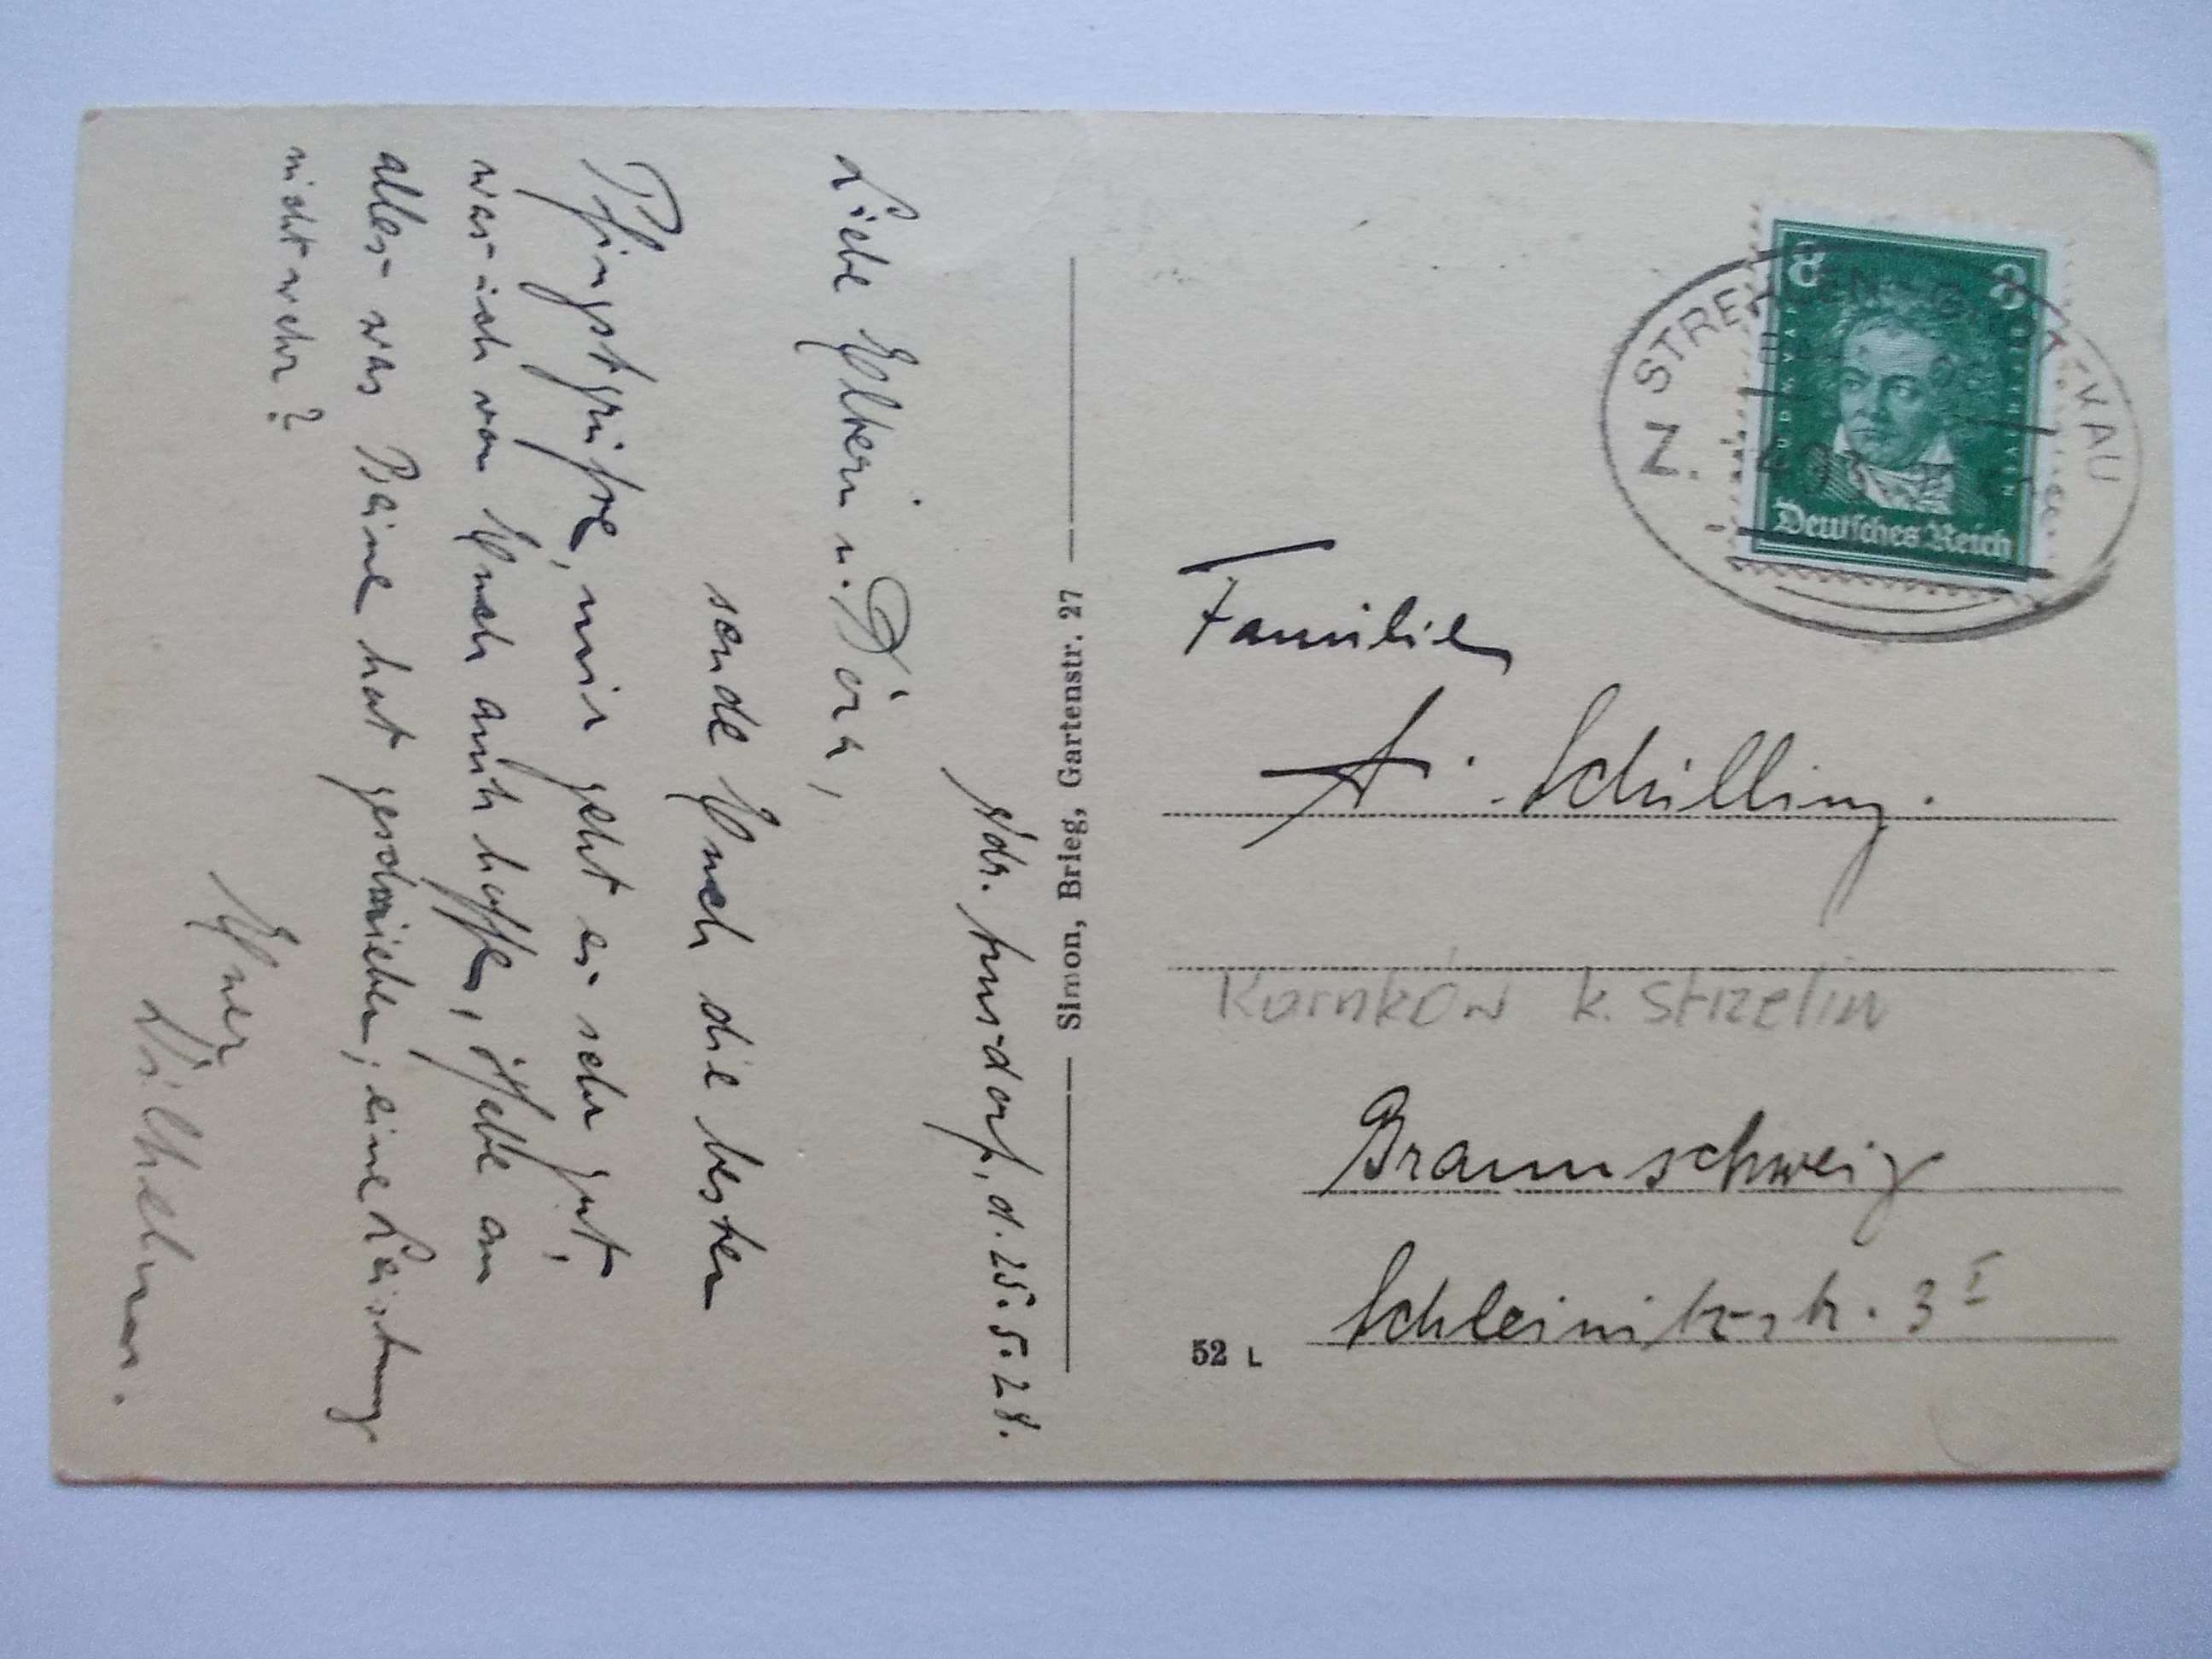 Ndr. , d. 25.5.28.
Liebe Eltern u. Dör,
sende Euch die besten
Pfingstgrüße, mir geht es sehr gut,
was ich von Euch auch hoffe, habe an
alles was Beine hat geschrieben; eine Leistung
nicht wahr?
Euer
Wilhelm.
Simon, Brieg, Gartenstr. 27
8 8
LUDW. VAN BEETHOVEN
Deutsches Reich
STREHLEN - GROTTKAU
Z.
Familie
A. Schilling.
Karnków k. Strzelin
Braunschweig
Schleinitzstr. 3 I
52 L